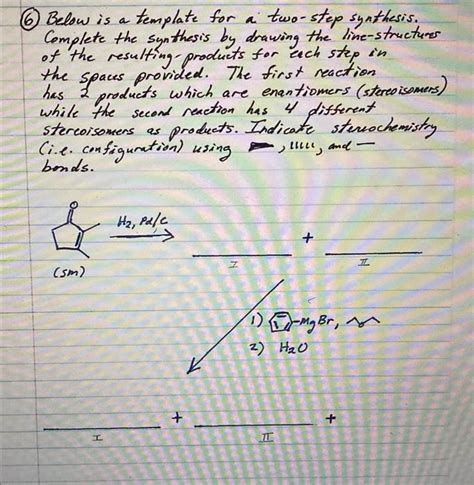 ⑥ Below is a template for a two-step synthesis.
Complete the synthesis by drawing the line-structures
of the resulting-products for each step in
the spaces provided. The first reaction
has 2 products which are enantiomers (stereoisomers)
while the second reaction has 4 different
stereoisomers as products. Indicate stereochemistry
(i.e. configuration) using , , and —
bonds.
O
H₂, Pd/C
+
(sm)
I
II
1) -MgBr, O
2) H₂O
+
+
I
II